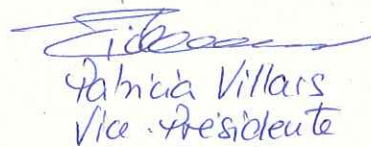 Patricia Villars
Vice-Présidente